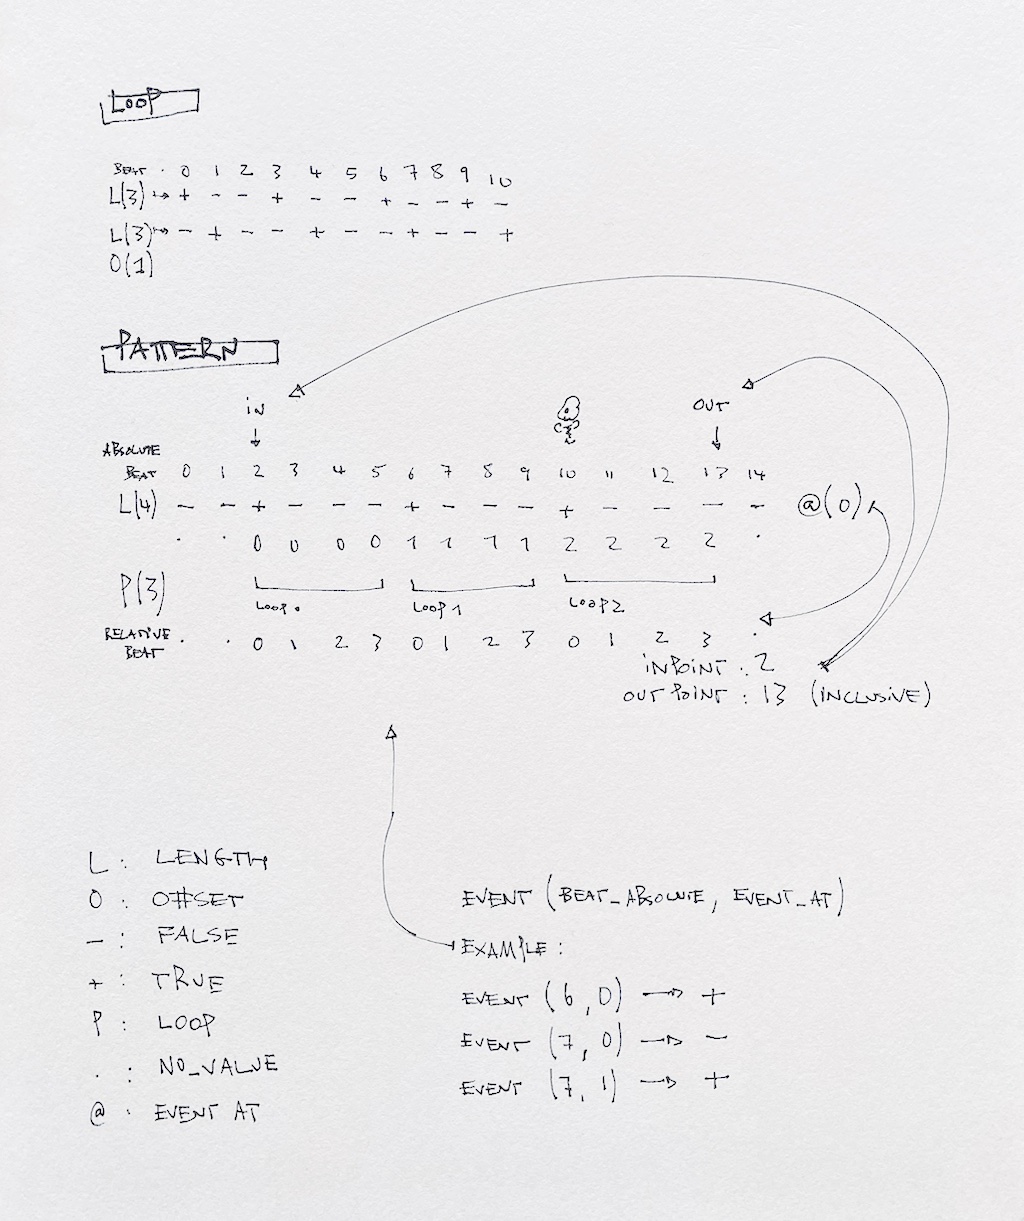 LOOP
BEAT . 0 1 2 3 4 5 6 7 8 9 10
L(3) → + - - + - - + - - + -
L(3) → - + - - + - - + - - +
O(1)
PATTERN
IN OUT
ABSOLUTE
BEAT 0 1 2 3 4 5 6 7 8 9 10 11 12 13 14
L(4) - - + - - - + - - - + - - - - @(0)
. . 0 0 0 0 1 1 1 1 2 2 2 2 .
P(3)
LOOP 0 LOOP 1 LOOP 2
RELATIVE
BEAT . . 0 1 2 3 0 1 2 3 0 1 2 3 .
INPOINT : 2
OUTPOINT : 13 (INCLUSIVE)
L : LENGTH
O : OFFSET
- : FALSE
+ : TRUE
P : LOOP
. : NO_VALUE
@ : EVENT AT
EVENT (BEAT_ABSOLUTE, EVENT_AT)
EXAMPLE :
EVENT (6, 0) → +
EVENT (7, 0) → -
EVENT (7, 1) → +